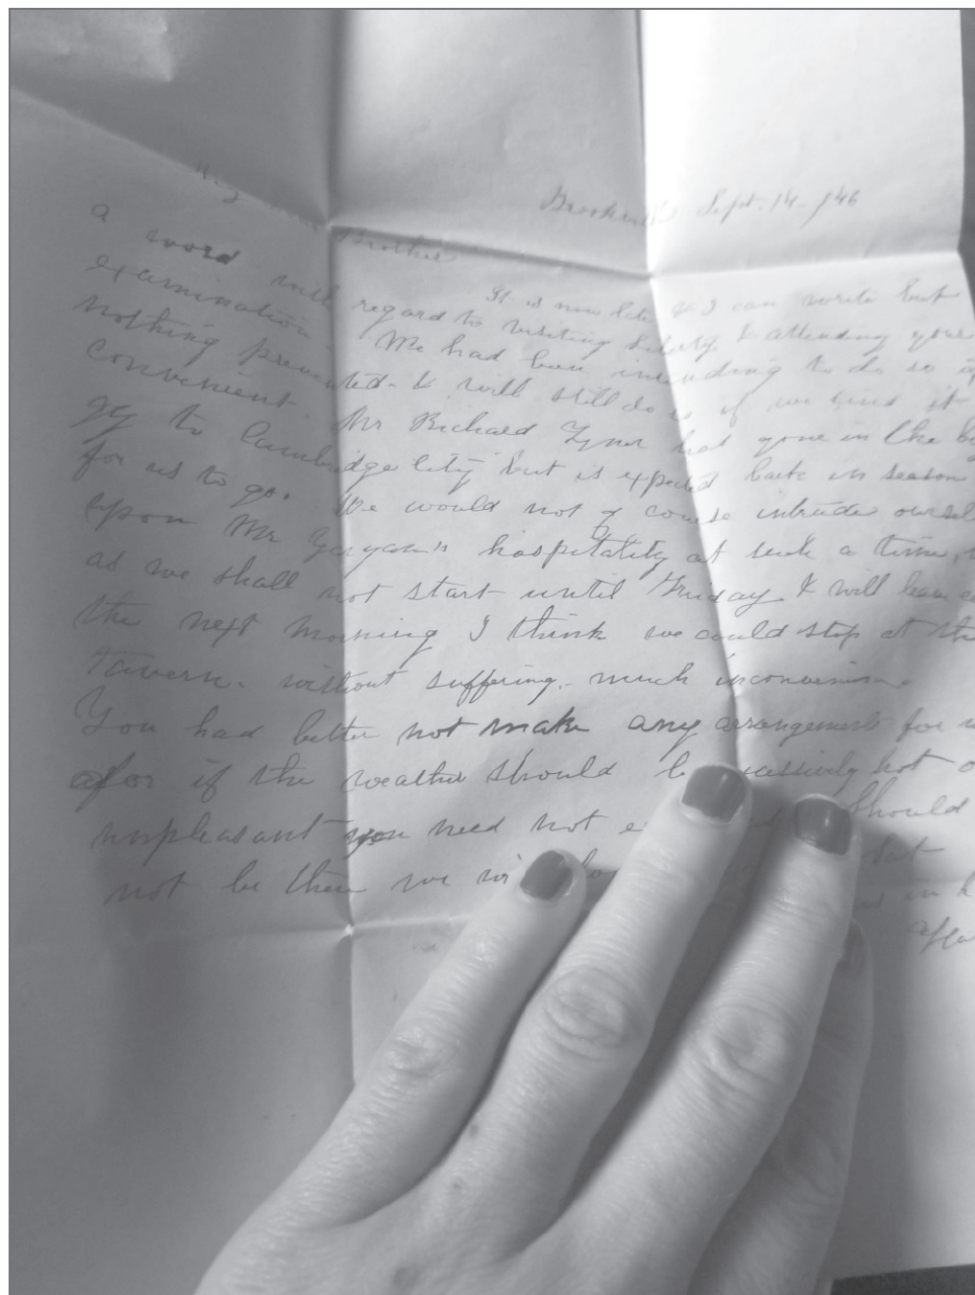 Sept. 14 - /46
Brother
It is now late & I can write but
a word with regard to visiting Liberty & attending your
examination. We had been intending to do so if
nothing prevented - & will still do so if we find it
convenient. Mr Richard Tyner had gone in the bug
gy to Cambridge City but is expected back in season
for us to go. We would not of course intrude oursel
upon Mr hospitality at such a time,
as we shall not start until Friday & will leave
the next morning I think we could stop at the
tavern. without suffering. much inconvenience
You had better not make any arrangements for
for if the weather should be excessively hot o
unpleasant you need not should
not be there we